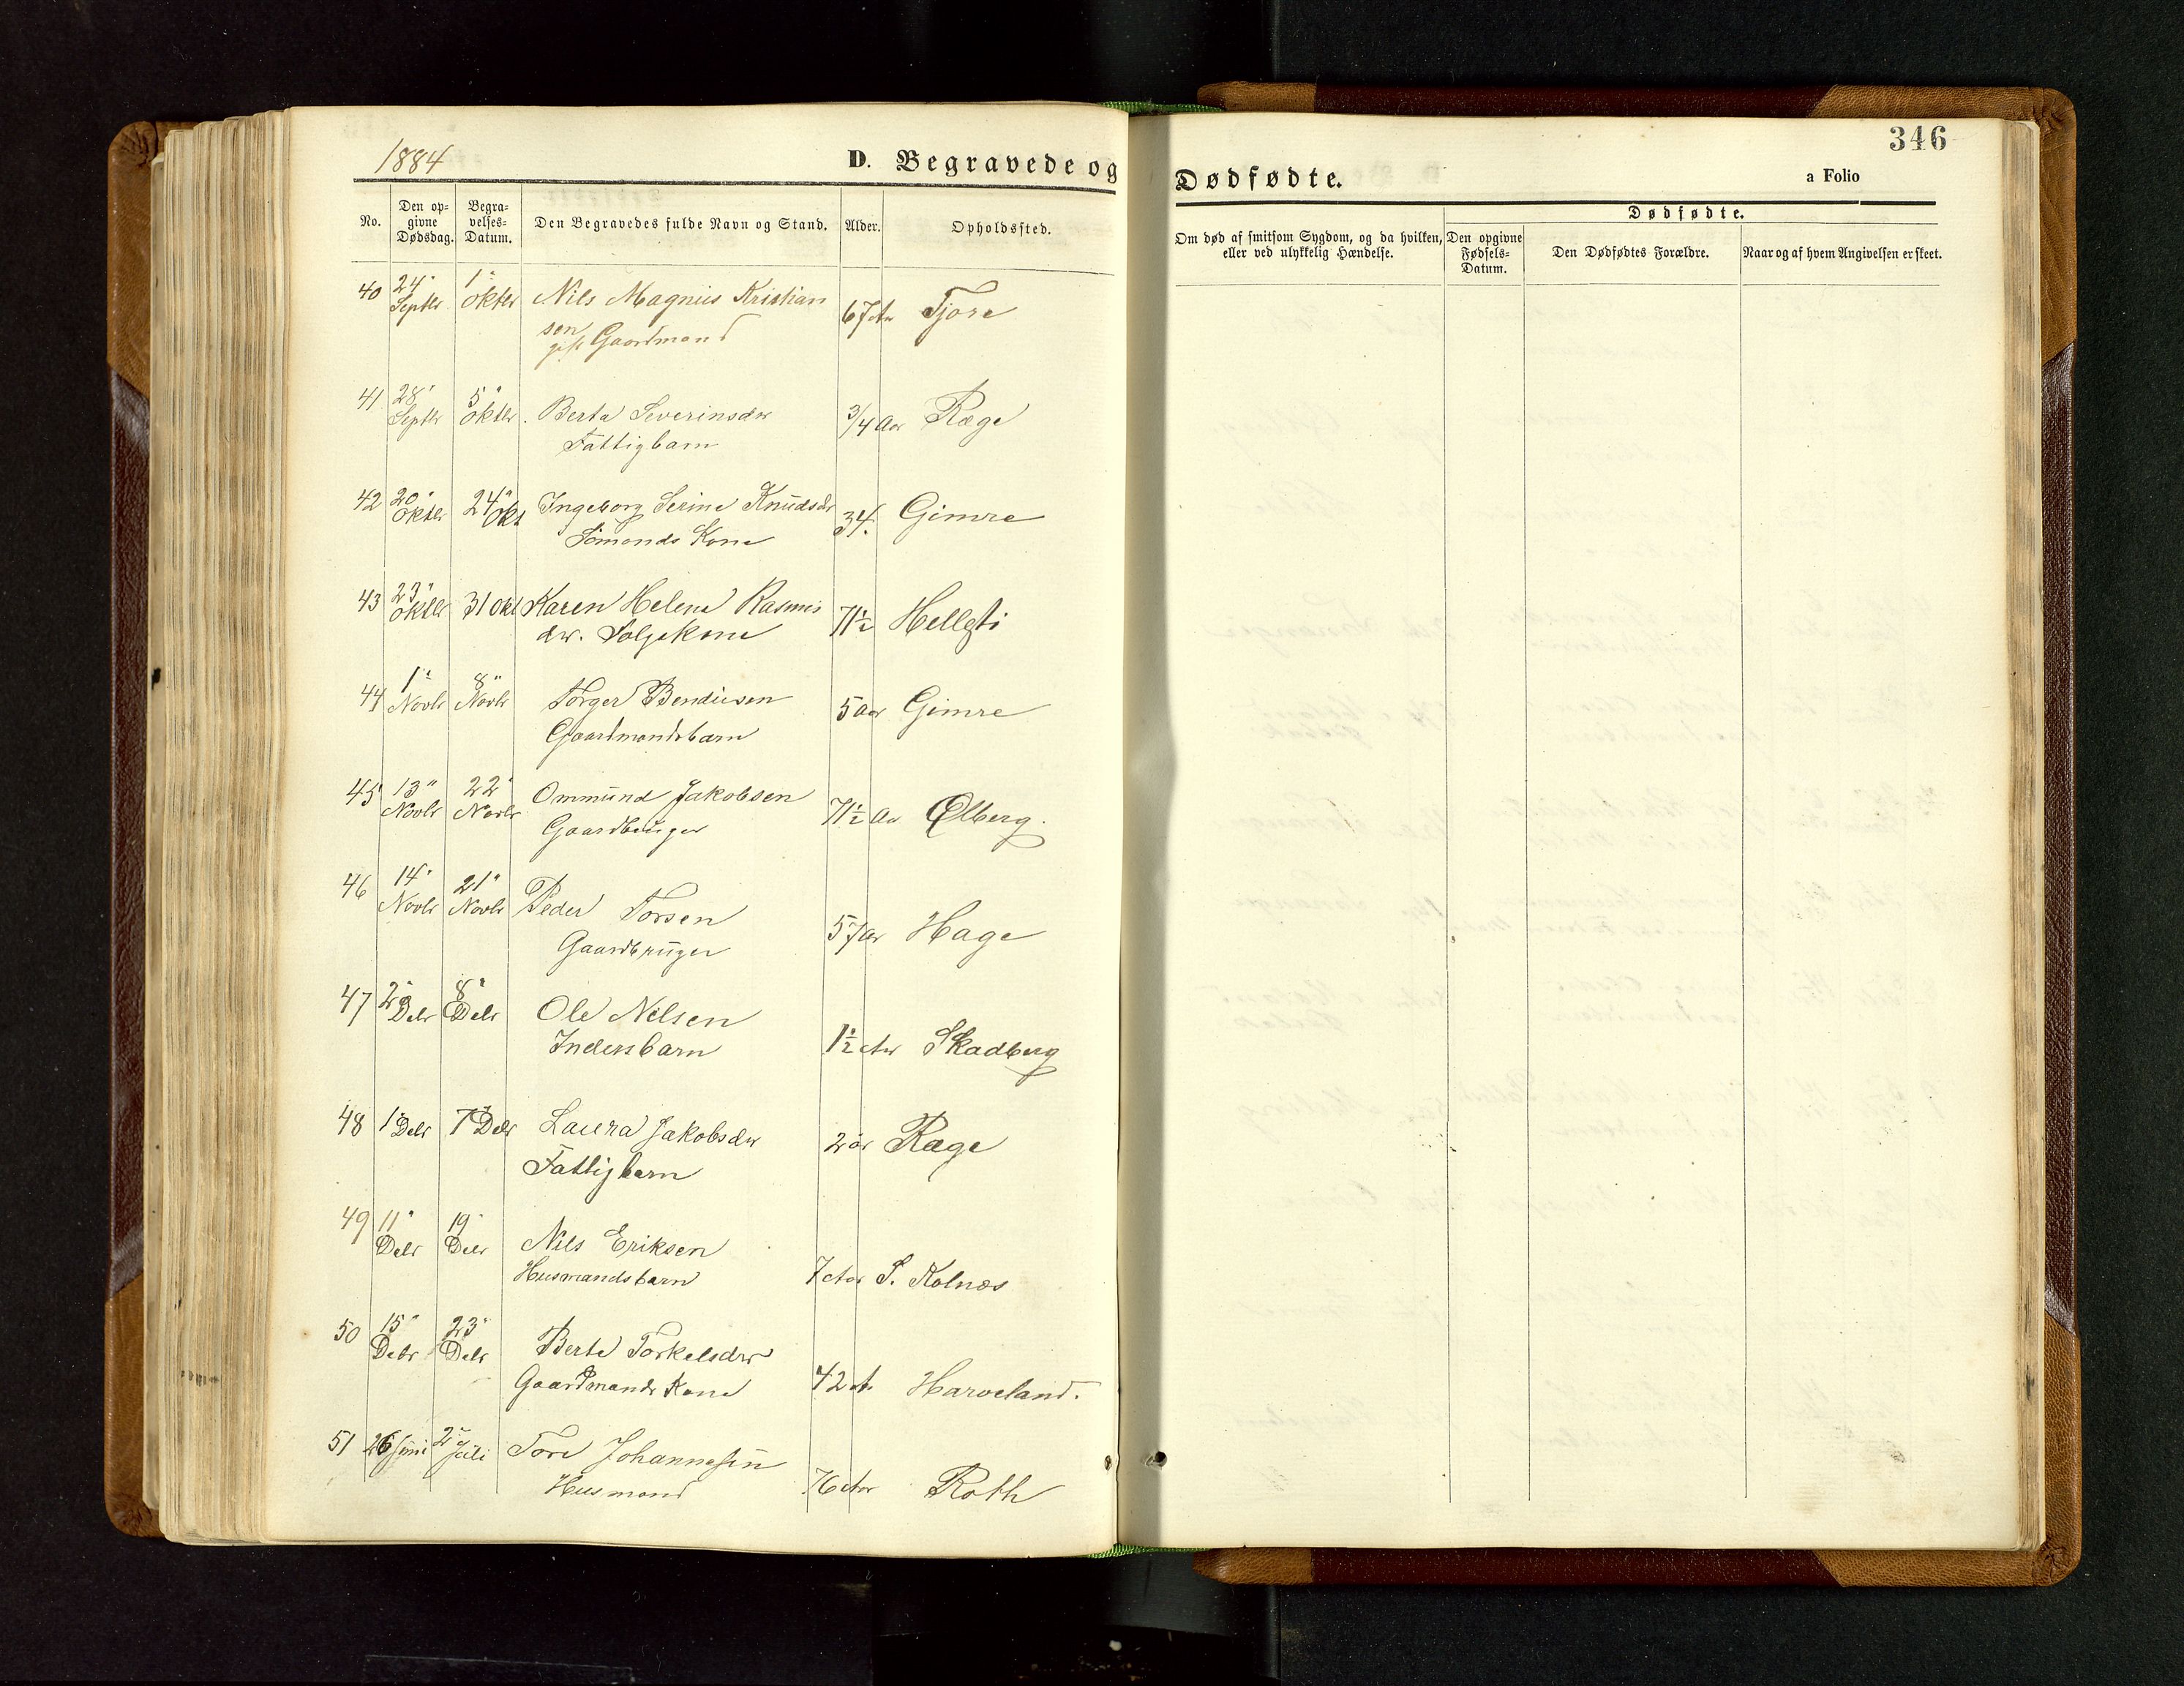 1884
D. Begravede og
No.
Den op-
givne
Dødsdag.
Begra-
velses-
Datum.
Den Begravedes fulde Navn og Stand.
Alder.
Opholdssted.
40 24" Septbr 1" Oktbr Nils Magnus Kristian
sen
gift Gaardmand 67 Aar Tjore
41 28" Septbr 5" Oktbr. Berta Severinsdtr 3/4 Aar Ræge
Fattigbarn
42 20" Oktbr 24" Okt Ingeborg Serine Knudsdtr 34. Gimre
Sømands Kone
43 23" Oktbr 31 Okt Karen Helene Rasmus
dtr. Følgekone 71½ Hellesti
44 1" Novbr 8" Novbr Torger Bendiksen 5 Aar Gimre
Gaardmandsbarn
45 13" Novbr 22" Novbr Ommund Jakobsen 71½ Aar Ølberg.
Gaardbruger
46 14" Novbr 21" Novbr Peder Torsen 57 Ar Hage
Gaardbruger
47 2" Debr 8" Debr Ole Nilsen
Inderstbarn 1½ Aar Skadberg
48 1" Debr 7" Debr Laura Jakobsdtr 2 år Ræge
Fattigbarn
49 11" Debr 19" Debr Nils Eriksen
Husmandsbarn 7 Aar S. Kolnæs
50 15" Debr 23" Debr Berte Torkelsdtr
Gaardmands Kone 42 Ar Harveland.
51 26 Juni 2" Juli Tore Johannessen
Husmand 76 Aar Roth
346
Dødfødte.
a Folio
Om død af smitsom Sygdom, og da hvilken,
eller ved ulykkelig Hændelse.
Dødfødte.
Den opgivne
Fødsels-
Datum.
Den Dødfødtes Forældre.
Naar og af hvem Angivelsen er skeet.